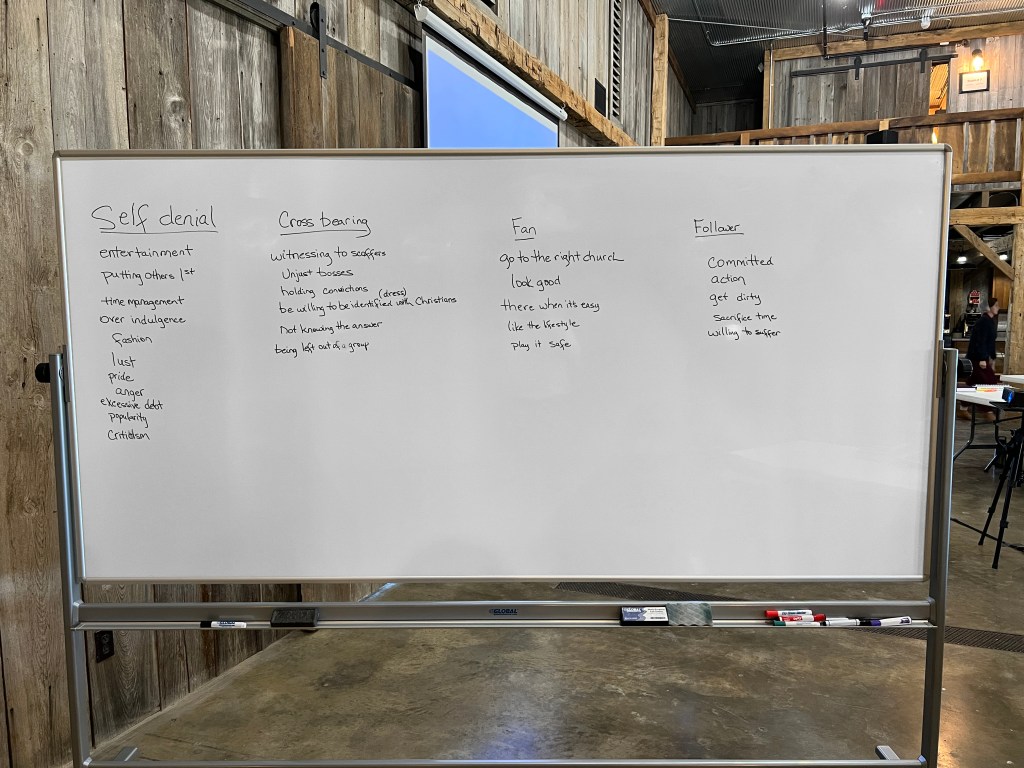 Self denial
entertainment
putting others 1st
time management
over indulgence
fashion
lust
pride
anger
excessive debt
popularity
Criticism
Cross bearing
witnessing to scoffers
Unjust bosses
holding convictions (dress)
be willing to be identified with Christians
Not knowing the answer
being left out of a group
Fan
go to the right church
look good
there when it's easy
like the lifestyle
play it safe
Follower
Committed
action
get dirty
sacrifice time
willing to suffer
GLOBAL